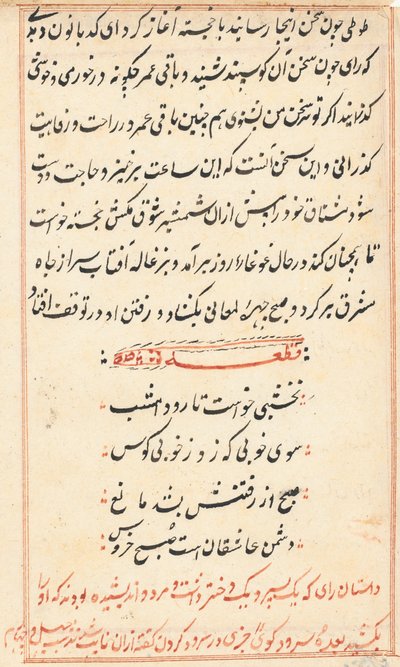 طوطی چون سخن اینجا رسانید با خجسته آغاز کرد ای کدبانو
که رای چون سخن آن کو بپسندیشنید و باقی عمر چگونه در خوری و خوشی
کذرانید اکر تو نیز سخن من بشنوی هم چنین باقی عمر در راحت و رفاهیت
کذرانی و این سخن آنست که این ساعت برخیز و حاجت دوست
شو مشتاق خود را بیش ازان شمشیر شوق مکش خجسته خواست
تا همچنان کند در حال غوغاء روز برآمد و بزغاله آفتاب سر از چاه
مشرق بر کرد و صبح چهره لمعانی بکشاد و رفتن او در توقف افتاد
قطعه
نخشبی خواست تا رود امشب
سوی خوبی که زد ز خوبی کوس
صبح از رفتنش بشد مانع
دشمن عاشقان است صبح خروس
داستان رای که یک پسر و یک دختر داشت و مردو اندیشیده بودند که او را